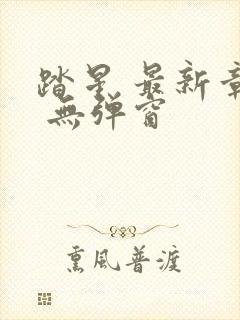 踏星 最新章
無彈窗
熏風普渡